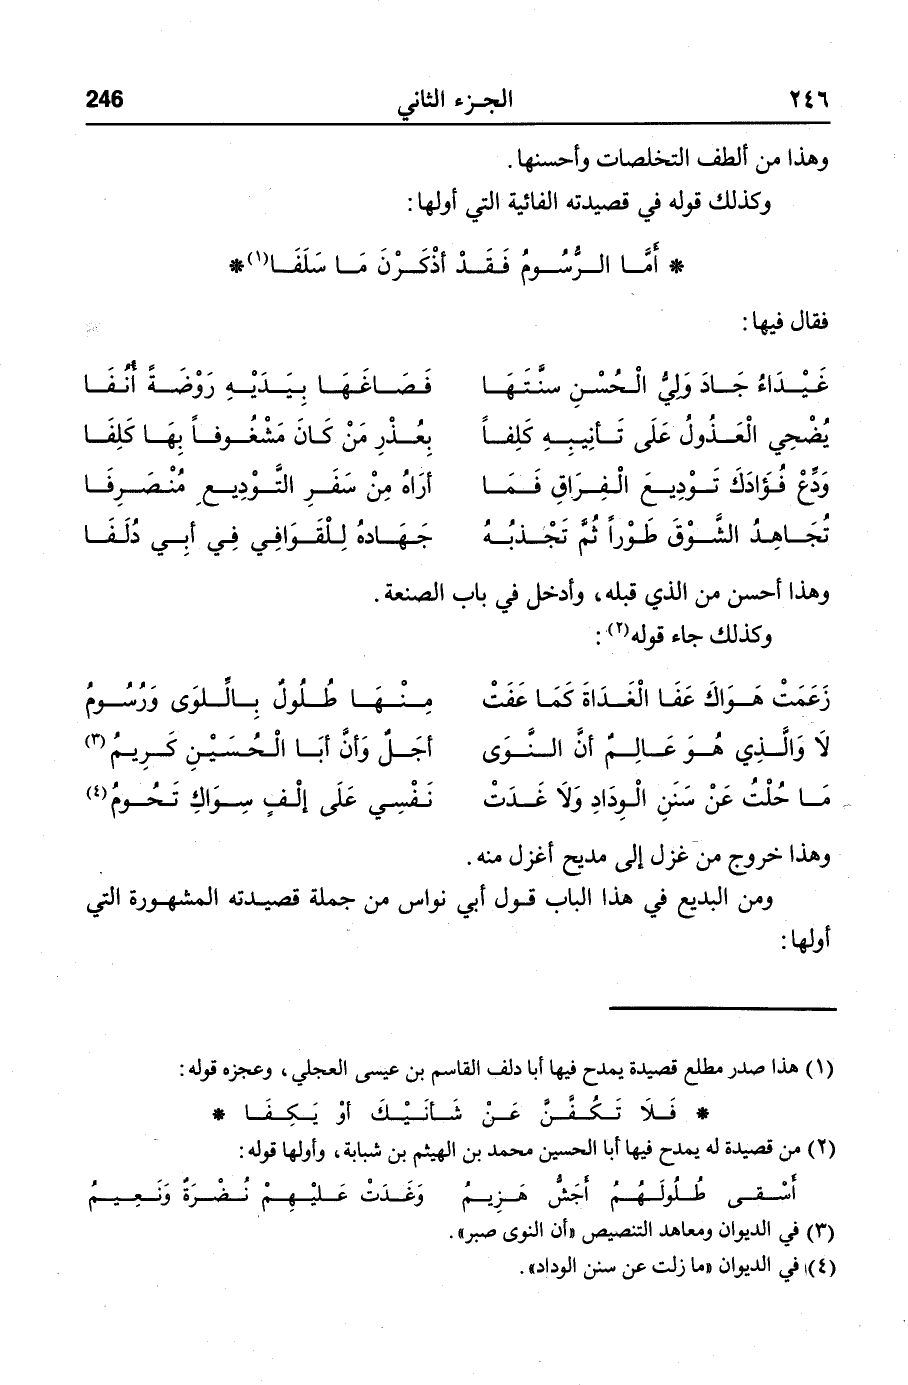 ٢٤٦ الجزء الثاني 246
وهذا من ألطف التخلصات وأحسنها.
وكذلك قوله في قصيدته الفائية التي أولها:
* أَمَّا الرُّسُومُ فَقَدْ أَذْكَرْنَ مَا سَلَفَا(١) *
فقال فيها:
غَيْدَاءُ جَادَ وَلِيُّ الْحُسْنِ سُنَّتَهَا فَصَاغَهَا بِيَدَيْهِ رَوْضَةً أُنُفَا
يُضْحِي الْعَذُولُ عَلَى تَأْنِيبِهِ كَلِفاً بِعُذْرِ مَنْ كَانَ مَشْغُوفاً بِهَا كَلِفَا
وَدِّعْ فُؤَادَكَ تَوْدِيعَ الْفِرَاقِ فَمَا أَرَاهُ مِنْ سَفَرِ التَّوْدِيعِ مُنْصَرِفَا
تُجَاهِدُ الشَّوْقَ طَوْراً ثُمَّ تَجْذِبُهُ جَهَادهُ لِلْقَوَافِي فِي أَبِي دُلَفَا
وهذا أحسن من الذي قبله، وأدخل في باب الصنعة.
وكذلك جاء قوله(٢):
زَعَمَتْ هَوَاكَ عَفَا الْغَدَاةَ كَمَا عَفَتْ مِنْهَا طُلُولٌ بِالِّلوَى وَرُسُومُ
لَا وَالَّذِي هُوَ عَالِمٌ أَنَّ النَّوَى أَجَلٌ وَأَنَّ أَبَا الْحُسَيْنِ كَرِيمُ(٣)
مَا حُلْتُ عَنْ سَنَنِ الْوِدَادِ وَلَا غَدَتْ نَفْسِي عَلَى إِلْفٍ سِوَاكِ تَحُومُ(٤)
وهذا خروج من غزل إلى مديح أغزل منه.
ومن البديع في هذا الباب قول أبي نواس من جملة قصيدته المشهورة التي
أولها:
(١) هذا صدر مطلع قصيدة يمدح فيها أبا دلف القاسم بن عيسى العجلي، وعجزه قوله:
* فَلَا تَكُفَّنَّ عَنْ شَأْنَيْكَ أَوْ يَكِفَا *
(٢) من قصيدة له يمدح فيها أبا الحسين محمد بن الهيثم بن شبابة، وأولها قوله:
أَسْقَى طُلُولَهُمُ أَجَشُّ هَزِيمُ وَغَدَتْ عَلَيْهِمْ نُضْرَةٌ وَنَعِيمُ
(٣) في الديوان ومعاهد التنصيص «أن النوى صبر».
(٤) في الديوان «ما زلت عن سنن الوداد».